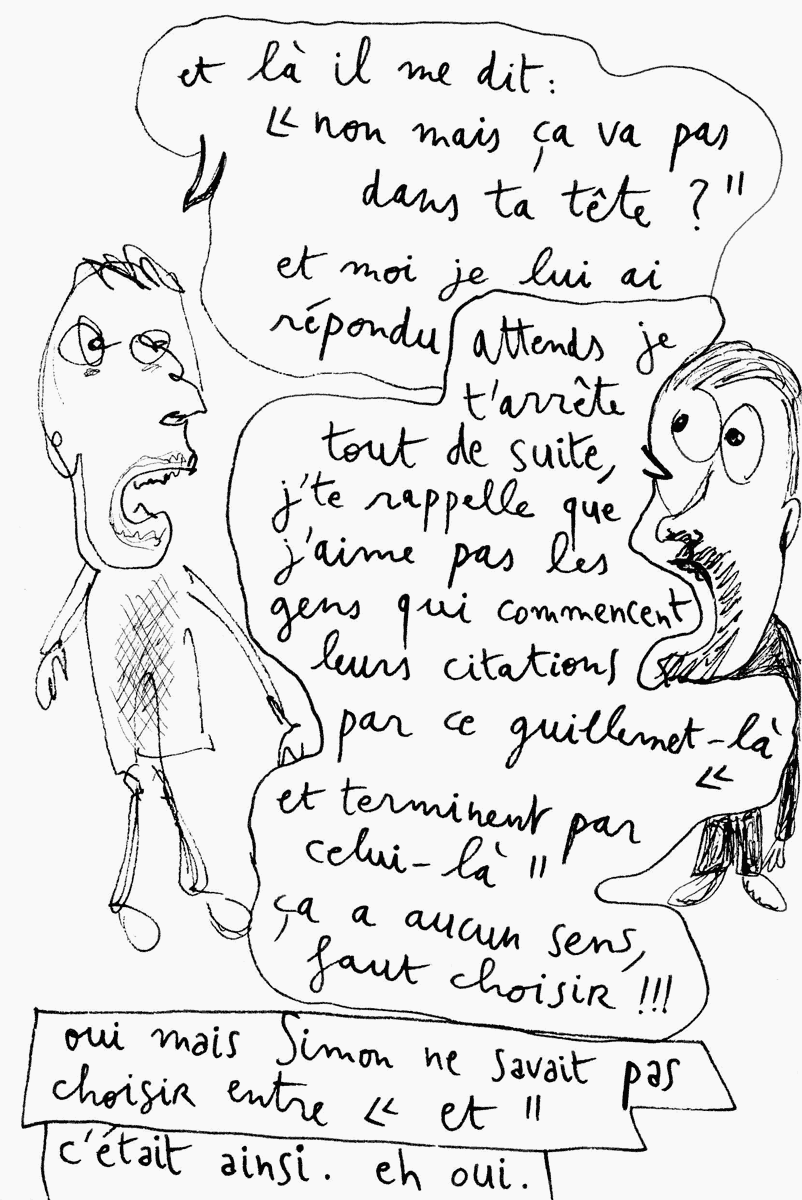 et là il me dit :
« non mais ça va pas
dans ta tête ? "
et moi je lui ai
répondu
attends je
t'arrête
tout de suite,
j'te rappelle que
j'aime pas les
gens qui commencent
leurs citations
par ce guillemet-là
«
et terminent par
celui-là "
ça a aucun sens,
faut choisir !!!
oui mais Simon ne savait pas
choisir entre « et "
c'était ainsi. eh oui.